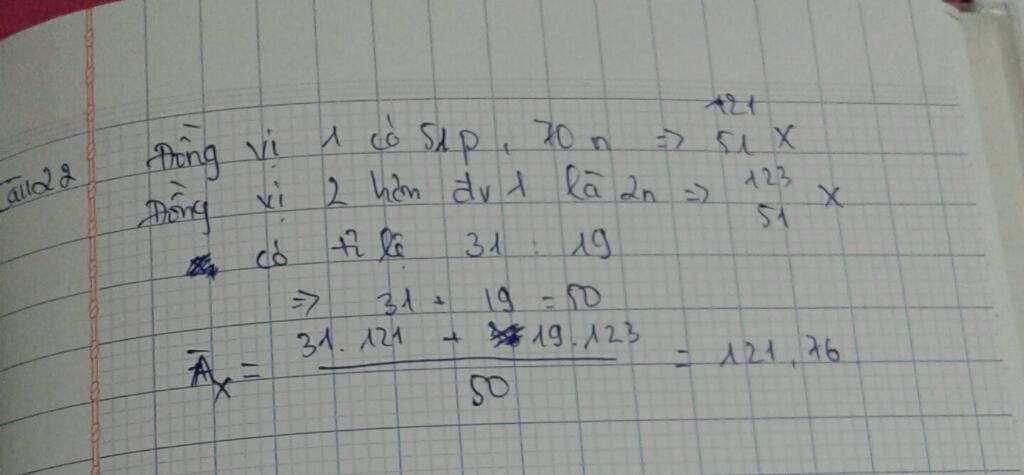 Câu 22
Đồng vị 1 có 51p, 70n => ¹²¹₅₁X
Đồng vị 2 hơn đv 1 là 2n => ¹²³₅₁X
có tỉ lệ 31 : 19
=> 31 + 19 = 50
Āₓ = (31.121 + 19.123) / 50 = 121,76